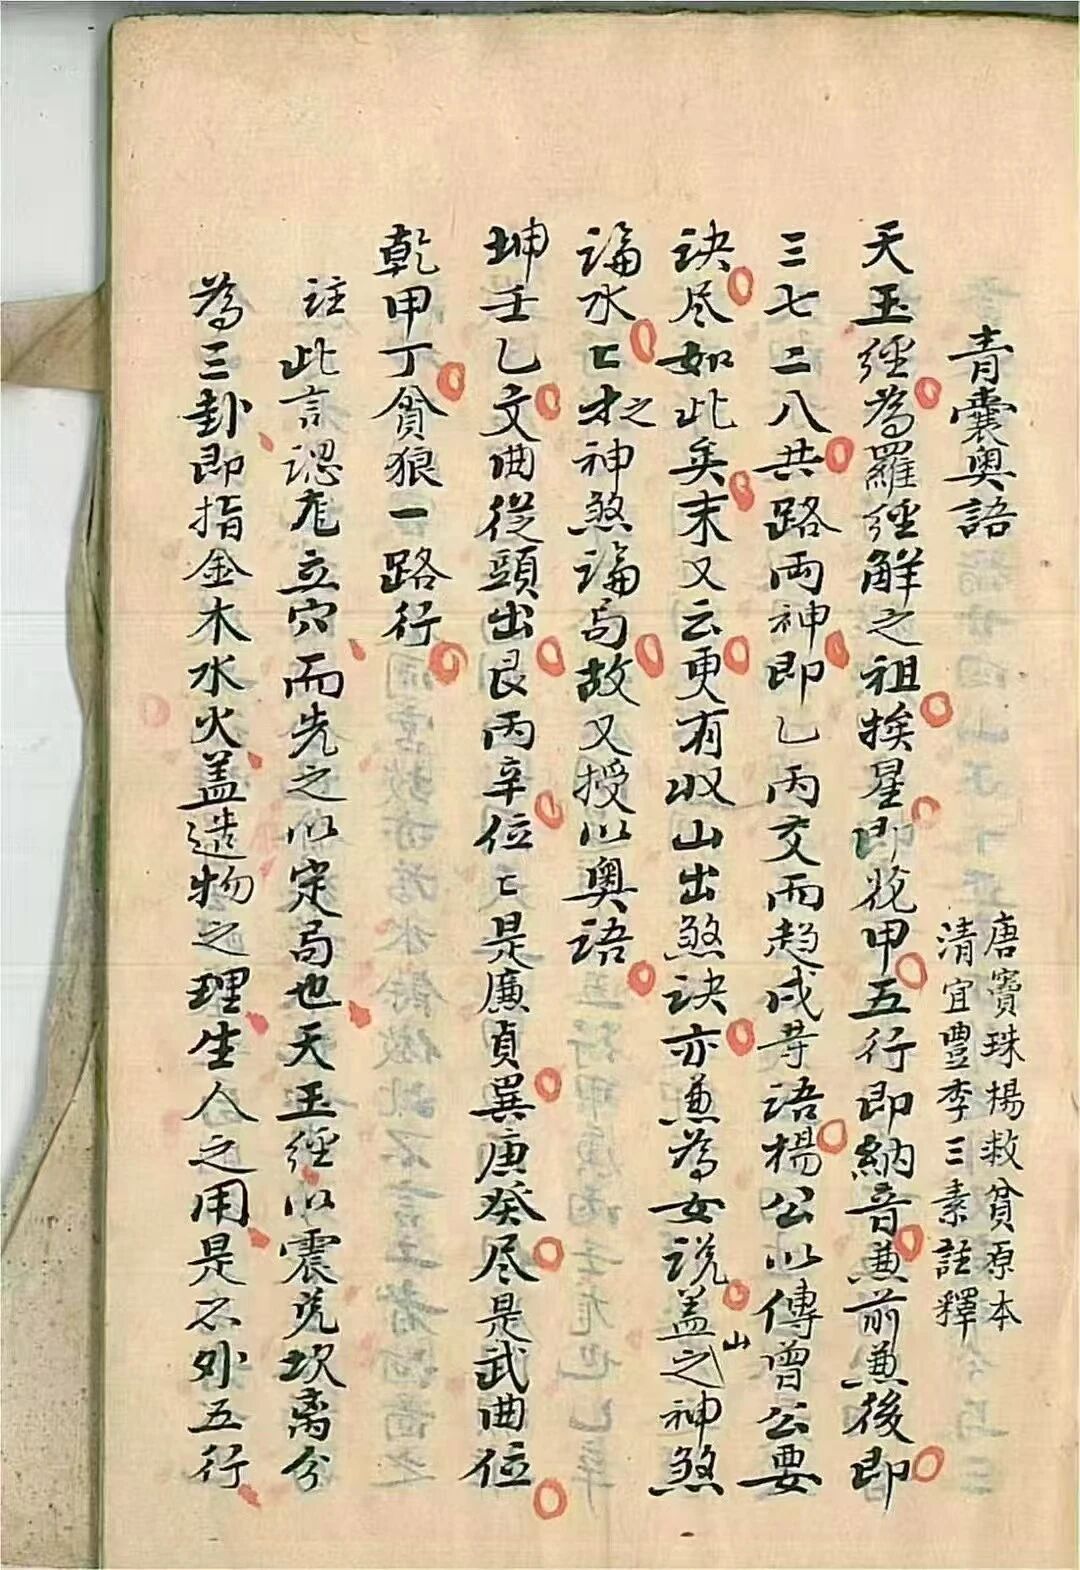 青囊奥語
唐寶珠楊救貧原本
清宜豐李三素註釋
天玉經為羅經解之祖挨星即花甲五行即納音兼前兼後即
三七二八共路両神即乙丙交而趋戌等语楊公以傳曾公要
诀尽如此矣末又云更有收山出煞诀亦兼為女说盖山之神煞
論水〻才之神煞論局故又授以奥语
坤壬乙文曲從頭出艮丙辛位〻是廉貞巽庚癸尽是武曲位
乾甲丁貪狼一路行
註此言認龙立穴而先之以定局也天玉經以震兑坎离分
為三卦即指金木水火盖造物之理生人之用是不外五行